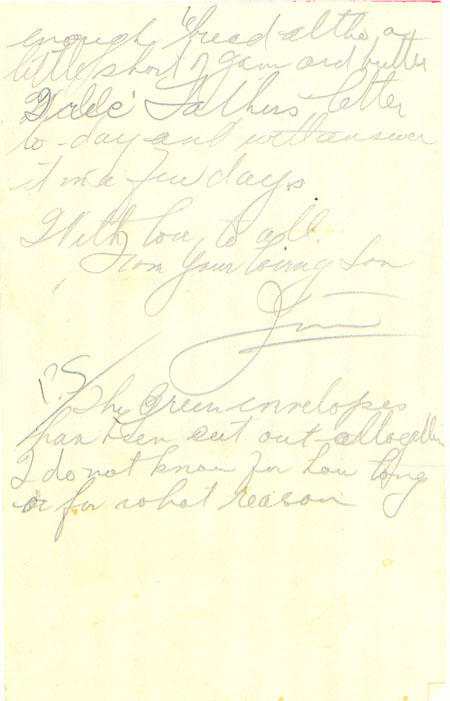 enough bread altho a
little short of jam and butter
I rec'd Fathers letter
to-day and will answer
it in a few days
With love to all.
From your loving Son
Jim
P.S
The green envelopes
have been cut out altogether
I do not know for how long
or for what reason